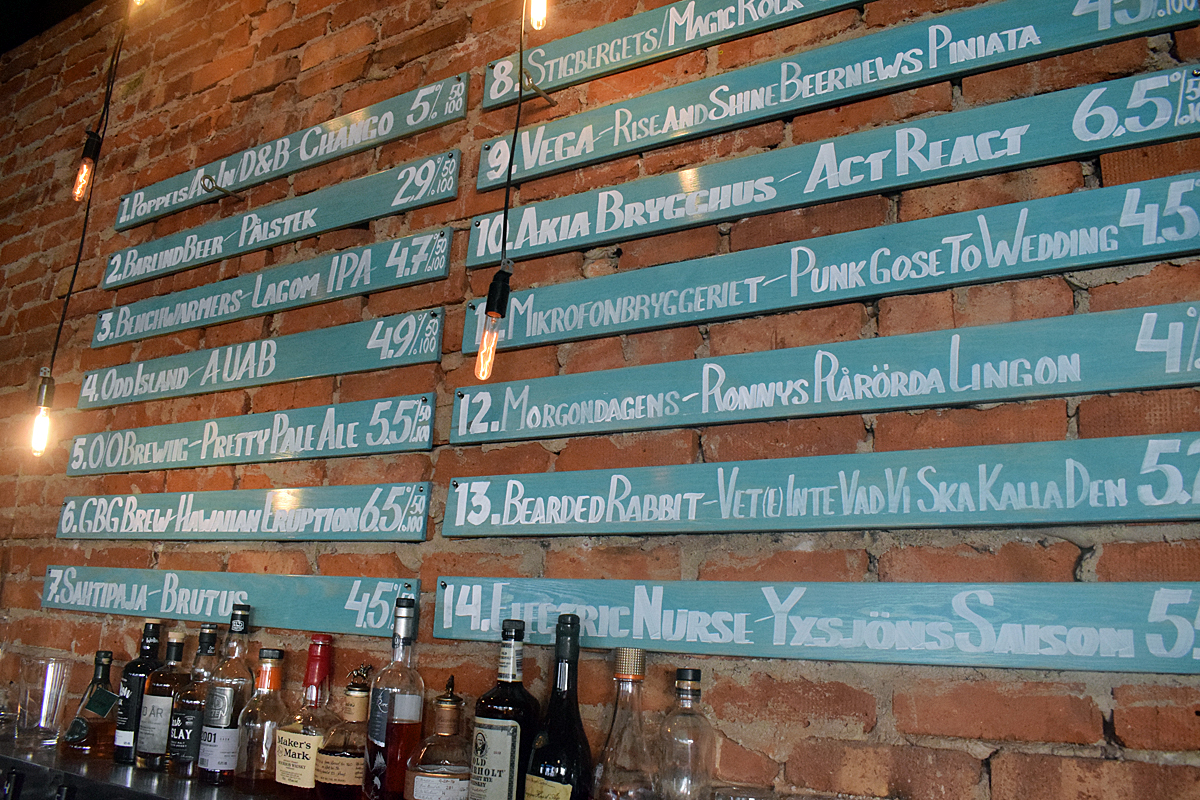 1. POPPELS/ALL IN D&B - CHANGO 5% 50 %100
2. BARLINDBEER - PÅLSTEK 29% 50 %100
3. BENCHWARMERS - LAGOM IPA 4.7% 50 %100
4. ODD ISLAND - A UAB 4.9% 50 %100
5. O/O BREWING - PRETTY PALE ALE 5.5% 50 %100
6. GBG BREW - HAWAIIAN ERUPTION 6.5% 50 %100
7. SAHTIPAJA - BRUTUS 4.5%
8. STIGBERGETS/MAGIC ROCK
9. VEGA - RISE AND SHINE BEERNEWS PINIATA 4.5 %100
10. AKIA BRYGGHUS - ACT REACT 6.5% 50
11. MIKROFONBRYGGERIET - PUNK GOSE TO WEDDING 4.5
12. MORGONDAGENS - RONNYS RÅRÖRDA LINGON 4%
13. BEARDED RABBIT - VET(E) INTE VAD VI SKA KALLA DEN 5.
14. ELECTRIC NURSE - YXSJÖNS SAISOM 5.
Maker's Mark
OLD